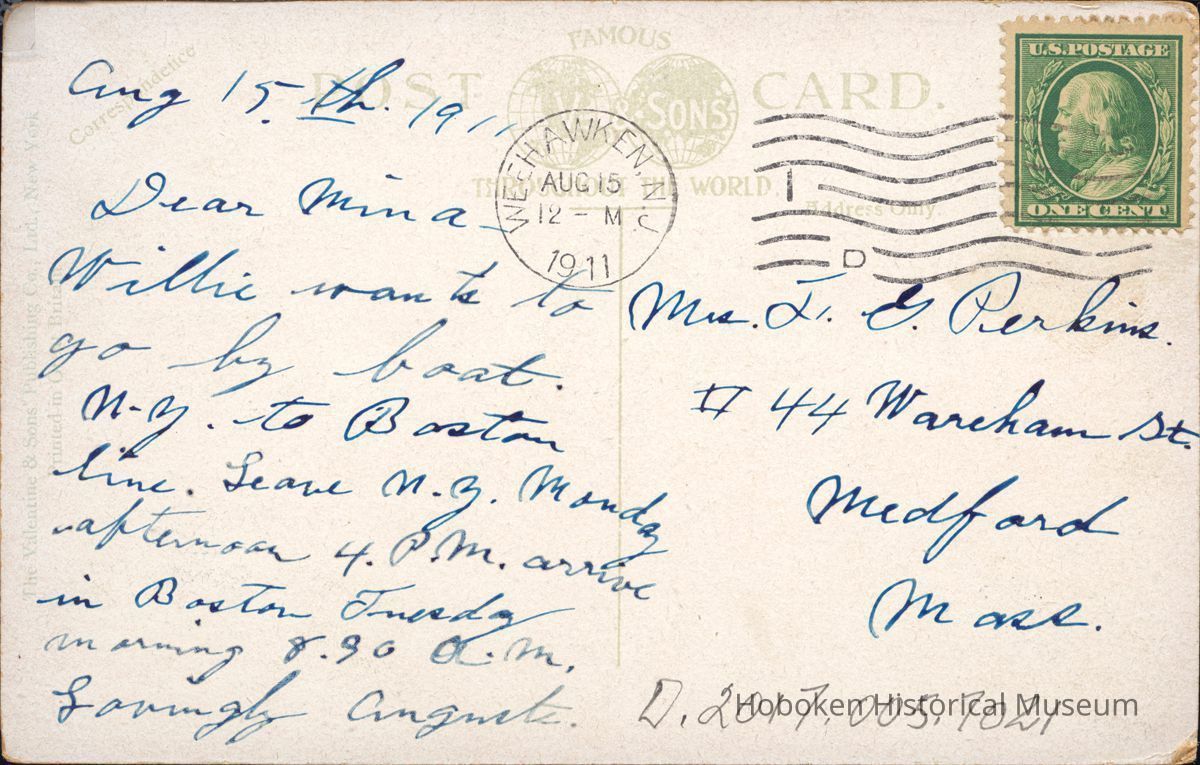 Correspondence
FAMOUS
POST CARD.
& SONS
THROUGHOUT THE WORLD.
Address Only.
U.S. POSTAGE
ONE CENT
WEEHAWKEN, N.J.
AUG 15
12 - M
1911
I
D
Aug 15th. 1911
Dear Mina -
Willie wants to
go by boat.
N-Y. to Boston
line. Leave N.Y. Monday
afternoon 4. P.M. arrive
in Boston Tuesday
morning 8.30 A.M.
Lovingly Auguste.
Mrs. F. G. Perkins.
# 44 Wareham St.
Medford
Mass.
D. 2017.005.7021
Hoboken Historical Museum
The Valentine & Sons' Publishing Co., Ltd., New York
Printed in